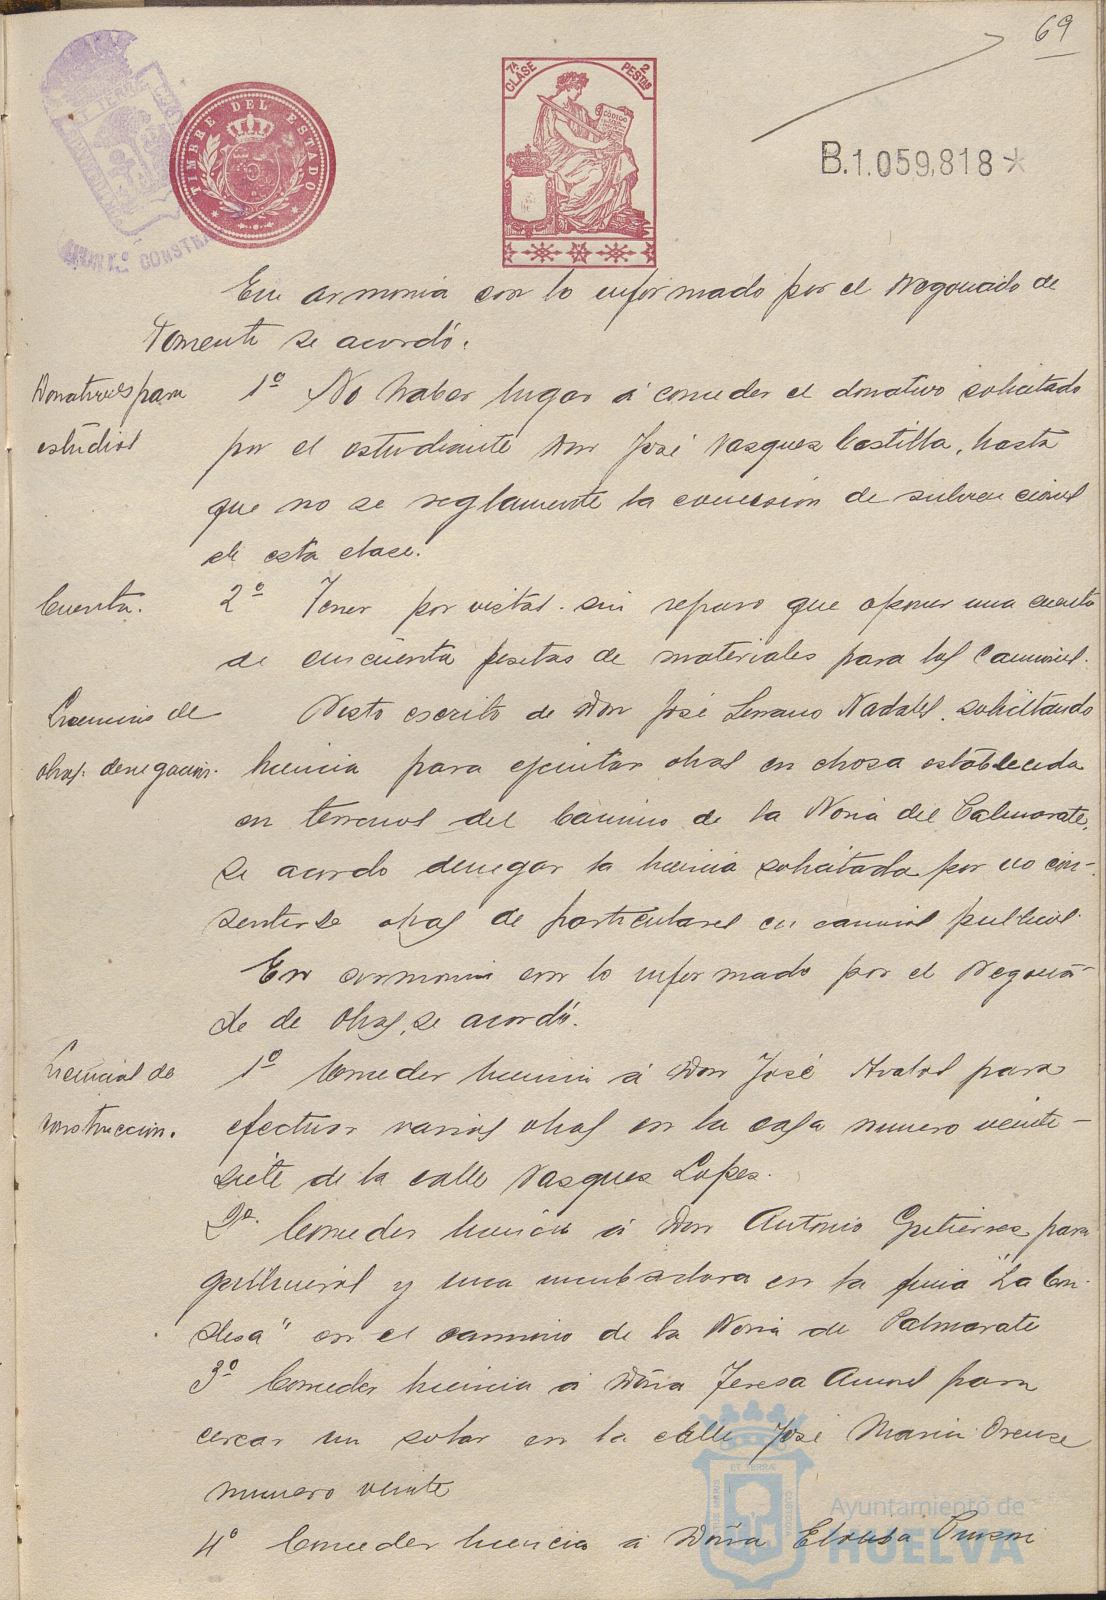 69
TIMBRE DEL ESTADO
7ª CLASE
2 PESTAS
CÓDIGO
B.1.059,818*
En armonia con lo informado por el Negociado de
Fomento se acordó.
Donativos para
estudios
1º No haber lugar á conceder el donativo solicitado
por el estudiante Don José Vasques Castilla, hasta
que no se reglamente la concesión de subvenciones
de esta clase.
Cuenta.
2º Tener por vistas sin reparo que oponer una cuenta
de cincuenta pesetas de materiales para los Caminos.
Licencias de
obras denegacion.
Visto escrito de Don José Serrano Nadales solicitando
licencia para ejecutar obras en chosa establecida
en terrenos del Camino de la Noria del Calmarate,
se acordo denegar la licencia solicitada por no con-
sentirse obras de particulares en caminos publicos.
En armonia con lo informado por el Negocia-
do de Obras, se acordó.
Licencias de
construccion.
1º Conceder licencia á Don José Avalos para
efectuar varias obras en la casa numero veinte-
siete de la calle Vasques Lopes.
2º Conceder licencia á Don Antonio Gutierrez para
gallineros y una incubadora en la finca "La Con-
desa" en el camino de la Noria de Palmarate
3º Conceder licencia á Doña Teresa Amores para
cercar un solar en la calle José Maria Orense
numero veinte
4º Conceder licencia á Doña Eloisa
Ayuntamiento de
HUELVA